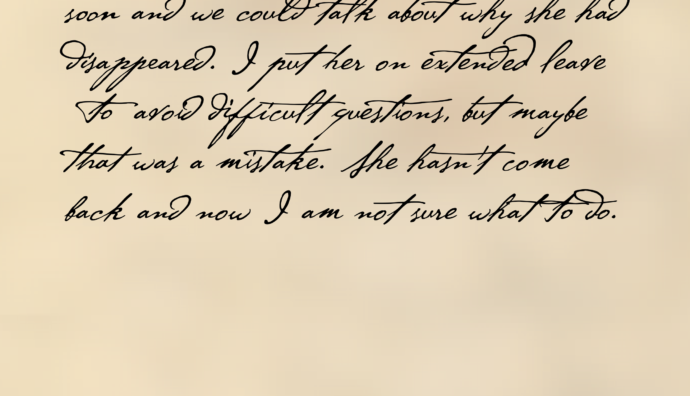 soon and we could talk about why she had
disappeared. I put her on extended leave
to avoid difficult questions, but maybe
that was a mistake. She hasn't come
back and now I am not sure what to do.